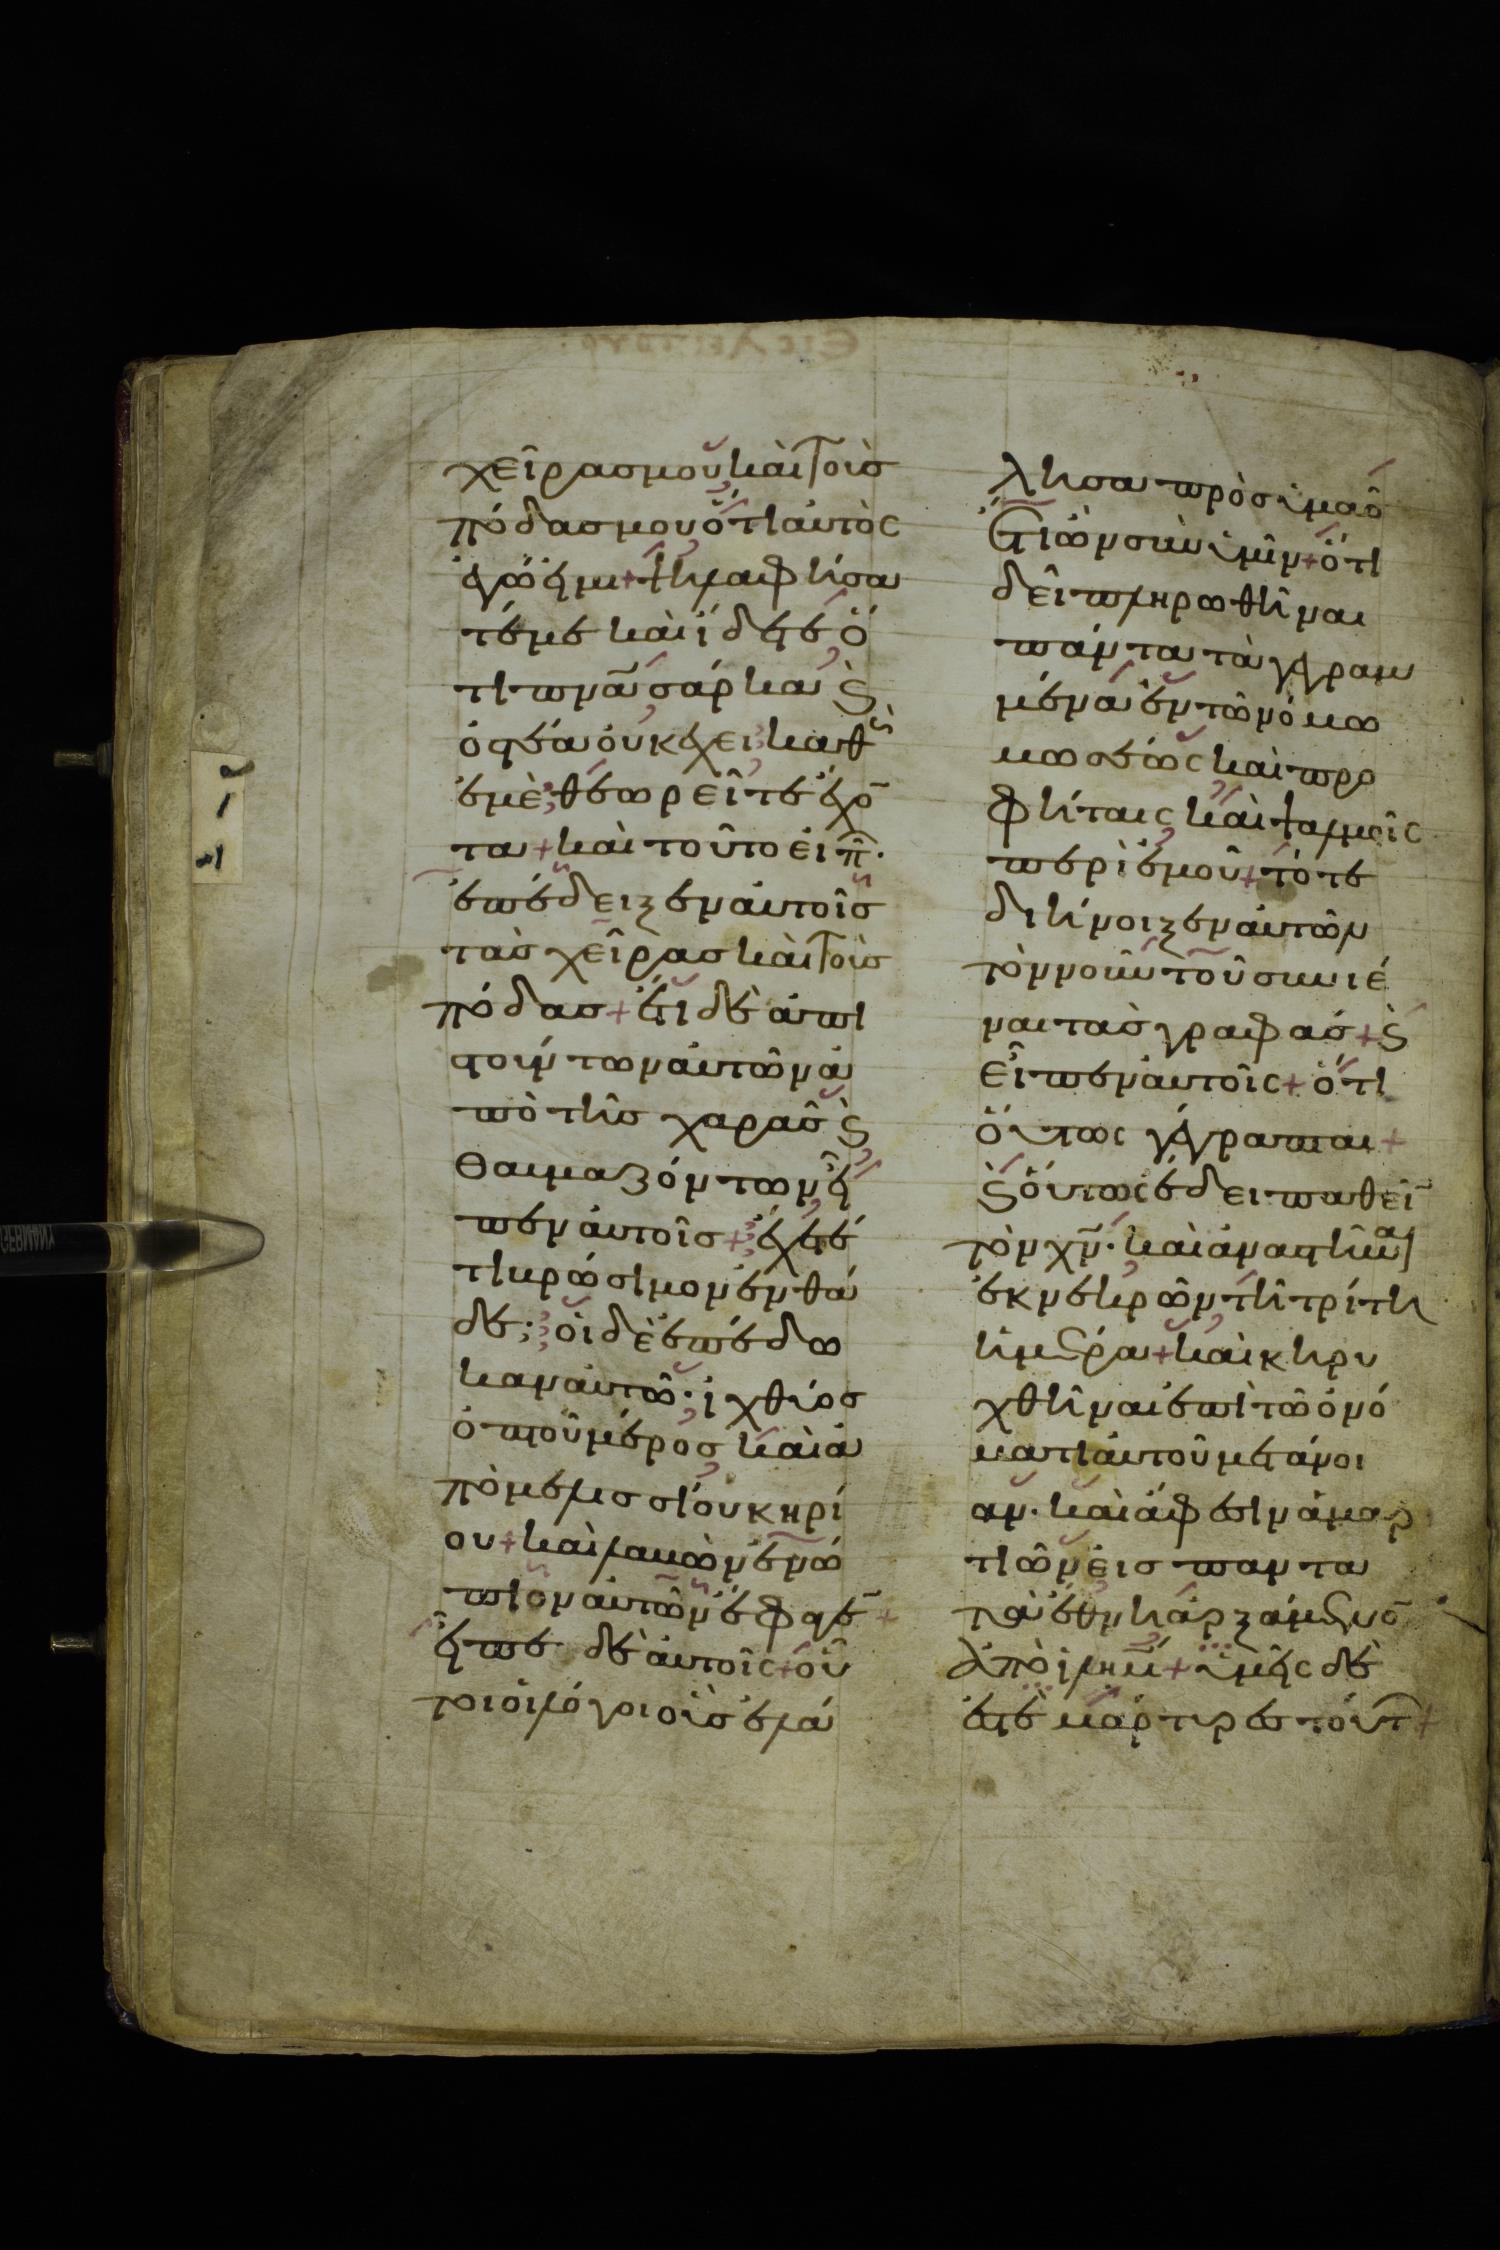 χεῖρας μου καὶ τοὺς
πόδας μου ὅτι αὐτὸς
ἐγώ εἰμι + ψηλαφήσα
τέ με καὶ ἴδετε ὅ
τι πνᾶ σάρκα ϗ
ὀστέα οὐκ ἔχει καθ
ἐμὲ θεωρεῖτε ἔχο
τα + καὶ τοῦτο εἰπ·
ἐπέδειξεν αὐτοῖς
τὰς χεῖρας καὶ τοὺς
πόδας + ἔτι δὲ ἀπι
στούντων αὐτῶν ἀ
πὸ τῆς χαρᾶς ϗ
θαυμαζόντων εἶ
πεν αὐτοῖς + ἔχετέ
τι βρώσιμον ἐνθά
δε; οἱ δὲ ἐπέδω
καν αὐτῶ· ἰχθύος
ὀπτοῦ μέρος καὶ ἀ
πὸ μελισσίου κηρί
ου + καὶ λαβὼν ἐνώ
πιον αὐτῶν ἔφαγεν +
εἶπε δὲ αὐτοῖς + οὗ
τοι οἱ λόγοι οὓς ἐλά
λησα πρὸς ὑμᾶς
ἔτι ὢν σὺν ὑμῖν + ὅτι
δεῖ πληρωθῆναι
πάντα τὰ γεγραμ
μένα ἐν τῶ νόμω
μωσέως καὶ προ
φήταις καὶ ψαλμοῖς
περὶ ἐμοῦ + τότε
διήνοιξεν αὐτῶν
τὸν νοῦν τοῦ συνιέ
ναι τὰς γραφάς + ϗ
εἶπεν αὐτοῖς + ὅτι
οὕτως γέγραπται +
ϗ οὕτως ἔδει παθεῖ
τὸν χν· καὶ ἀναστῆναι
ἐκ νεκρῶν τῆ τρίτη
ἡμέρα + καὶ κηρυ
χθῆναι ἐπὶ τῶ ὀνό
ματι αὐτοῦ μετάνοι
αν· καὶ ἄφεσιν ἁμαρ
τιῶν εἰς πάντα
τὰ ἔθνη ἀρξάμενο
ἀπὸ ιλημ + ὑμεῖς δὲ
ἐστὲ μάρτυρες τούτ +